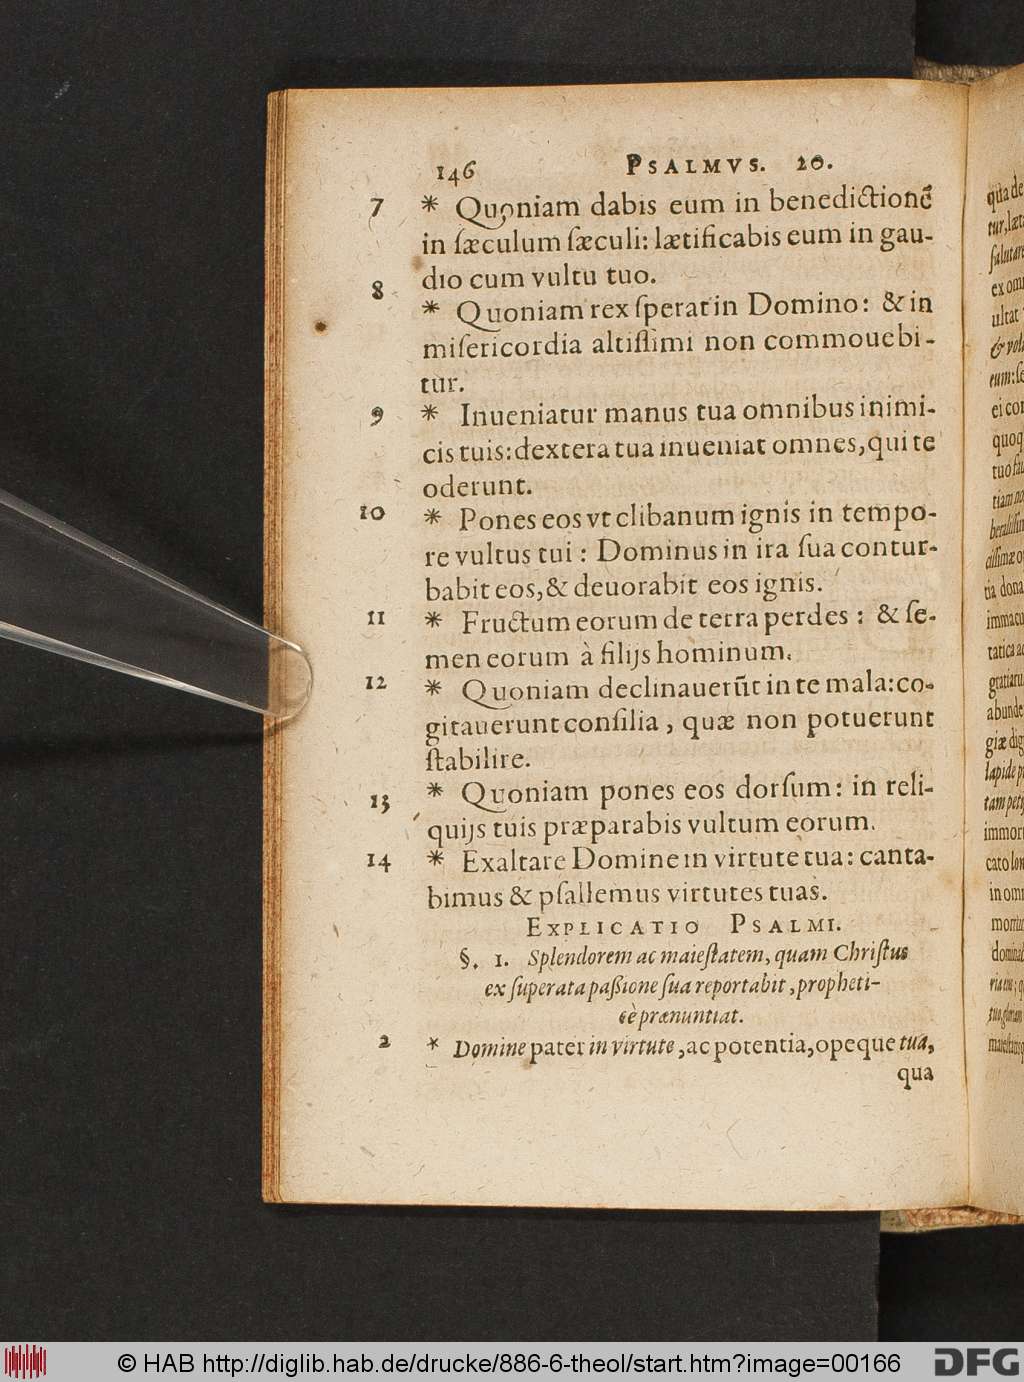 146 PSALMVS. 20.
7 * Quoniam dabis eum in benedictionē
in ſæculum ſæculi: lætificabis eum in gau-
dio cum vultu tuo.
8 * Quoniam rex ſperat in Domino: & in
miſericordia altiſſimi non commouebi-
tur.
9 * Inueniatur manus tua omnibus inimi-
cis tuis: dextera tua inueniat omnes, qui te
oderunt.
10 * Pones eos vt clibanum ignis in tempo-
re vultus tui : Dominus in ira ſua contur-
babit eos, & deuorabit eos ignis.
11 * Fructum eorum de terra perdes : & ſe-
men eorum à filijs hominum.
12 * Quoniam declinauerūt in te mala: co-
gitauerunt conſilia, quæ non potuerunt
ſtabilire.
13 * Quoniam pones eos dorſum: in reli-
quijs tuis præparabis vultum eorum.
14 * Exaltare Domine in virtute tua: canta-
bimus & pſallemus virtutes tuas.
EXPLICATIO PSALMI.
§. 1. Splendorem ac maieſtatem, quam Chriſtus
ex ſuperata paßione ſua reportabit, propheti-
cè prænuntiat.
2 * Domine pater in virtute, ac potentia, opeque tua,
qua
qua de
tur, læt
ſalutare
ex om
ultat
& vol
eum: ſe
ei con
quoq
tuo fa
tiam no
tia dona
immacu
tatica ac
gratiaru
abunde
giæ dig
lapide p
tam peti
immort
cato lon
in omn
© HAB http://diglib.hab.de/drucke/886-6-theol/start.htm?image=00166 DFG